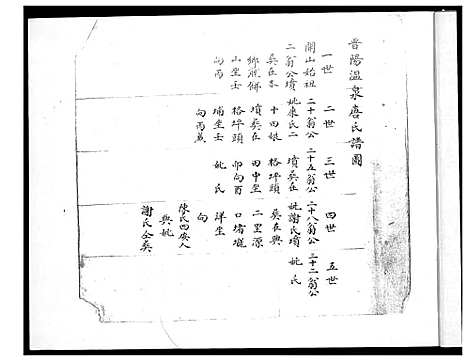 晋陽温泉唐氏譜圖
一世 二世 三世 四世 五世
開山始祖 二十翁公 二十五翁公 二十八翁公 二十二翁公
二翁公墳 妣康氏二 墳葵在 妣謝氏墳 妣氏
葵在本 十四娘 格坪頭 葵在興
鄉 墳葵在 田中坐 二里源
山坐壬 格坪頭 卯向酉 口
向丙 埔坐壬 妣氏 洋坐
向丙 向
陳氏四孺人
與妣
謝氏仝葵